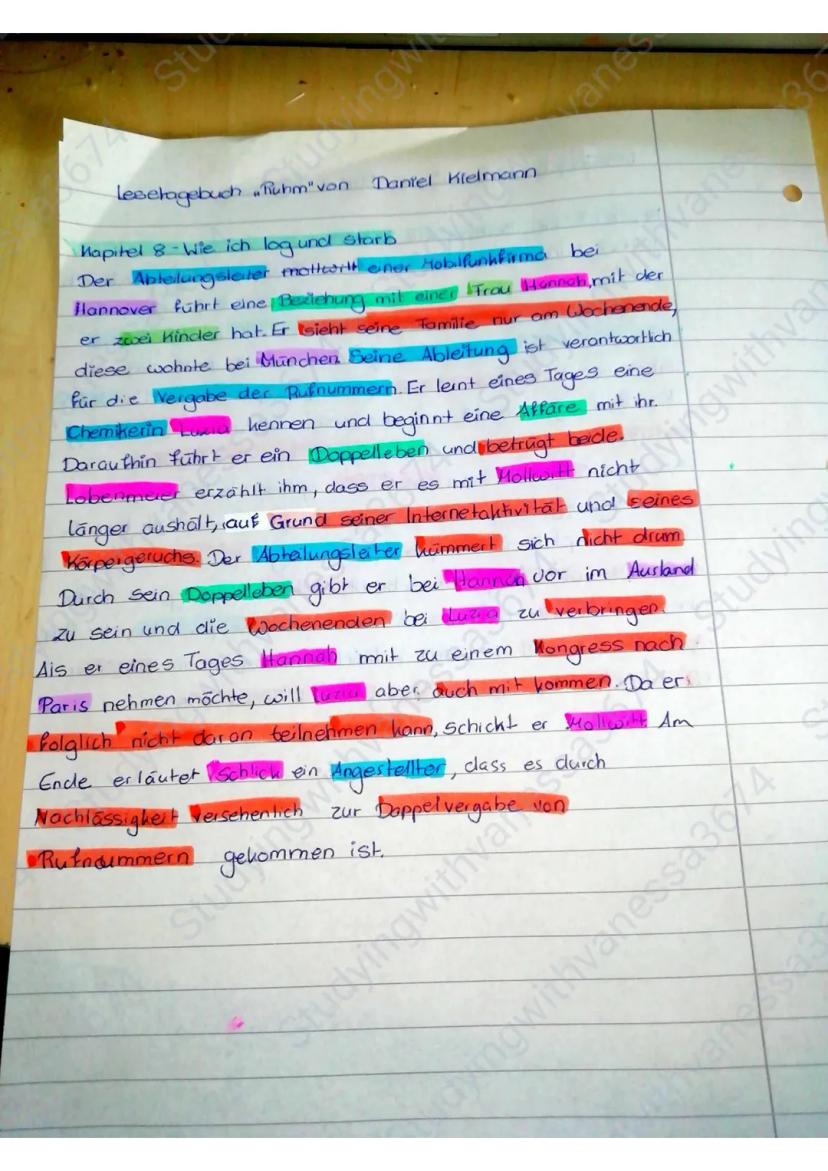 Lesetagebuch „Ruhm" von Daniel Klelmann
Kapitel 8 - Wie ich log und starb
Der Abteilungsleiter einer Mobilfunkfirma bei
Hannover führt eine Beziehung mit einer Frau Hannah, mit der
er zwei Kinder hat. Er sieht seine Familie nur am Wochenende,
diese wohnte bei München. Seine Ableitung ist verantwortlich
für die Vergabe der Rufnummern. Er lernt eines Tages eine
Chemikerin Luzia kennen und beginnt eine Affäre mit ihr.
Daraufhin führt er ein Doppelleben und betrügt beide.
Lobenmeier erzählt ihm, dass er es mit Mollwitt nicht
länger aushält, auf Grund seiner Internetaktivität und seines
Körpergeruchs. Der Abteilungsleiter kümmert sich nicht drum.
Durch sein Doppelleben gibt er bei Hannah vor im Ausland
zu sein und die Wochenenden bei Luzia zu verbringen.
Als er eines Tages Hannah mit zu einem Kongress nach
Paris nehmen möchte, will Luzia aber auch mit kommen. Da er
folglich nicht daran teilnehmen kann, schickt er Mollwitt. Am
Ende erläutet Schlick ein Angestellter, dass es durch
Nachlässigkeit versehentlich zur Doppelvergabe von
Rufnummern gekommen ist.
Studyingwithvanessa3674